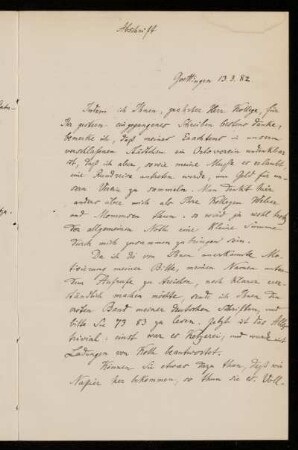 Abschrift
Goettingen 13.3.82
Indem ich Ihnen, geehrter Herr College, für
Ihr gestern eingegangenes Schreiben bestens danke,
bemerke ich, daß meines Erachtens in unserm
verschlafenen Städtchen ein Ortsverein undenkbar
ist, daß ich aben, sowie meine Muße es erlaubt,
eine Rundreise anheben werde, um Geld für un-
sern Verein zu sammeln. Man denkt hier
anders über mich als Ihre Collegen Weber
und Mommsen thun, so wird ja wohl trotz
der allgemeinen Noth eine kleine Summe
durch mich zusammen zu bringen sein.
Da ich die von Ihnen anerkannte Mo-
tivierung meiner Bitte, meinen Namen unter
dem Aufrufe zu streichen, noch klarer ver-
ständlich machen möchte, sende ich Ihnen den
ersten Band meiner deutschen Schriften, und
bitte S. 73 83 zu lesen. Jetzt ist das Alles
trivial: einst war es Ketzerei, und wurde mit
Ladungen von Koth beantwortet.
Können Sie etwas dazu thun, daß wir
Napier her bekommen, so thun sie es. Voll-